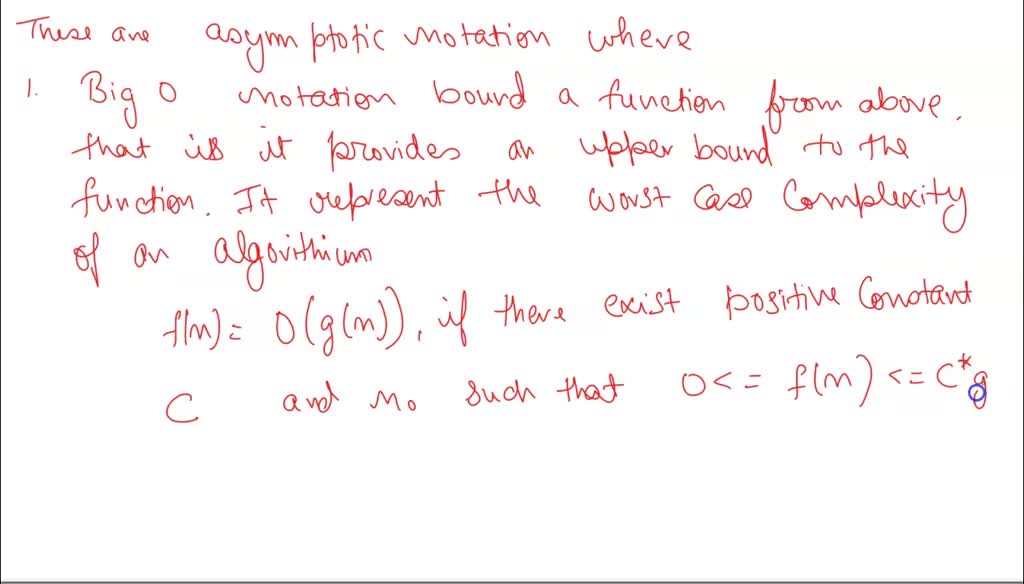 These are asymptotic notation where
1. Big O notation bound a function from above.
that is it provides an upper bound to the
function. It represent the worst case Complexity
of an algorithium
f(n) = O(g(n)), if there exist positive Constant
C and no such that 0 <= f(n) <= C*g